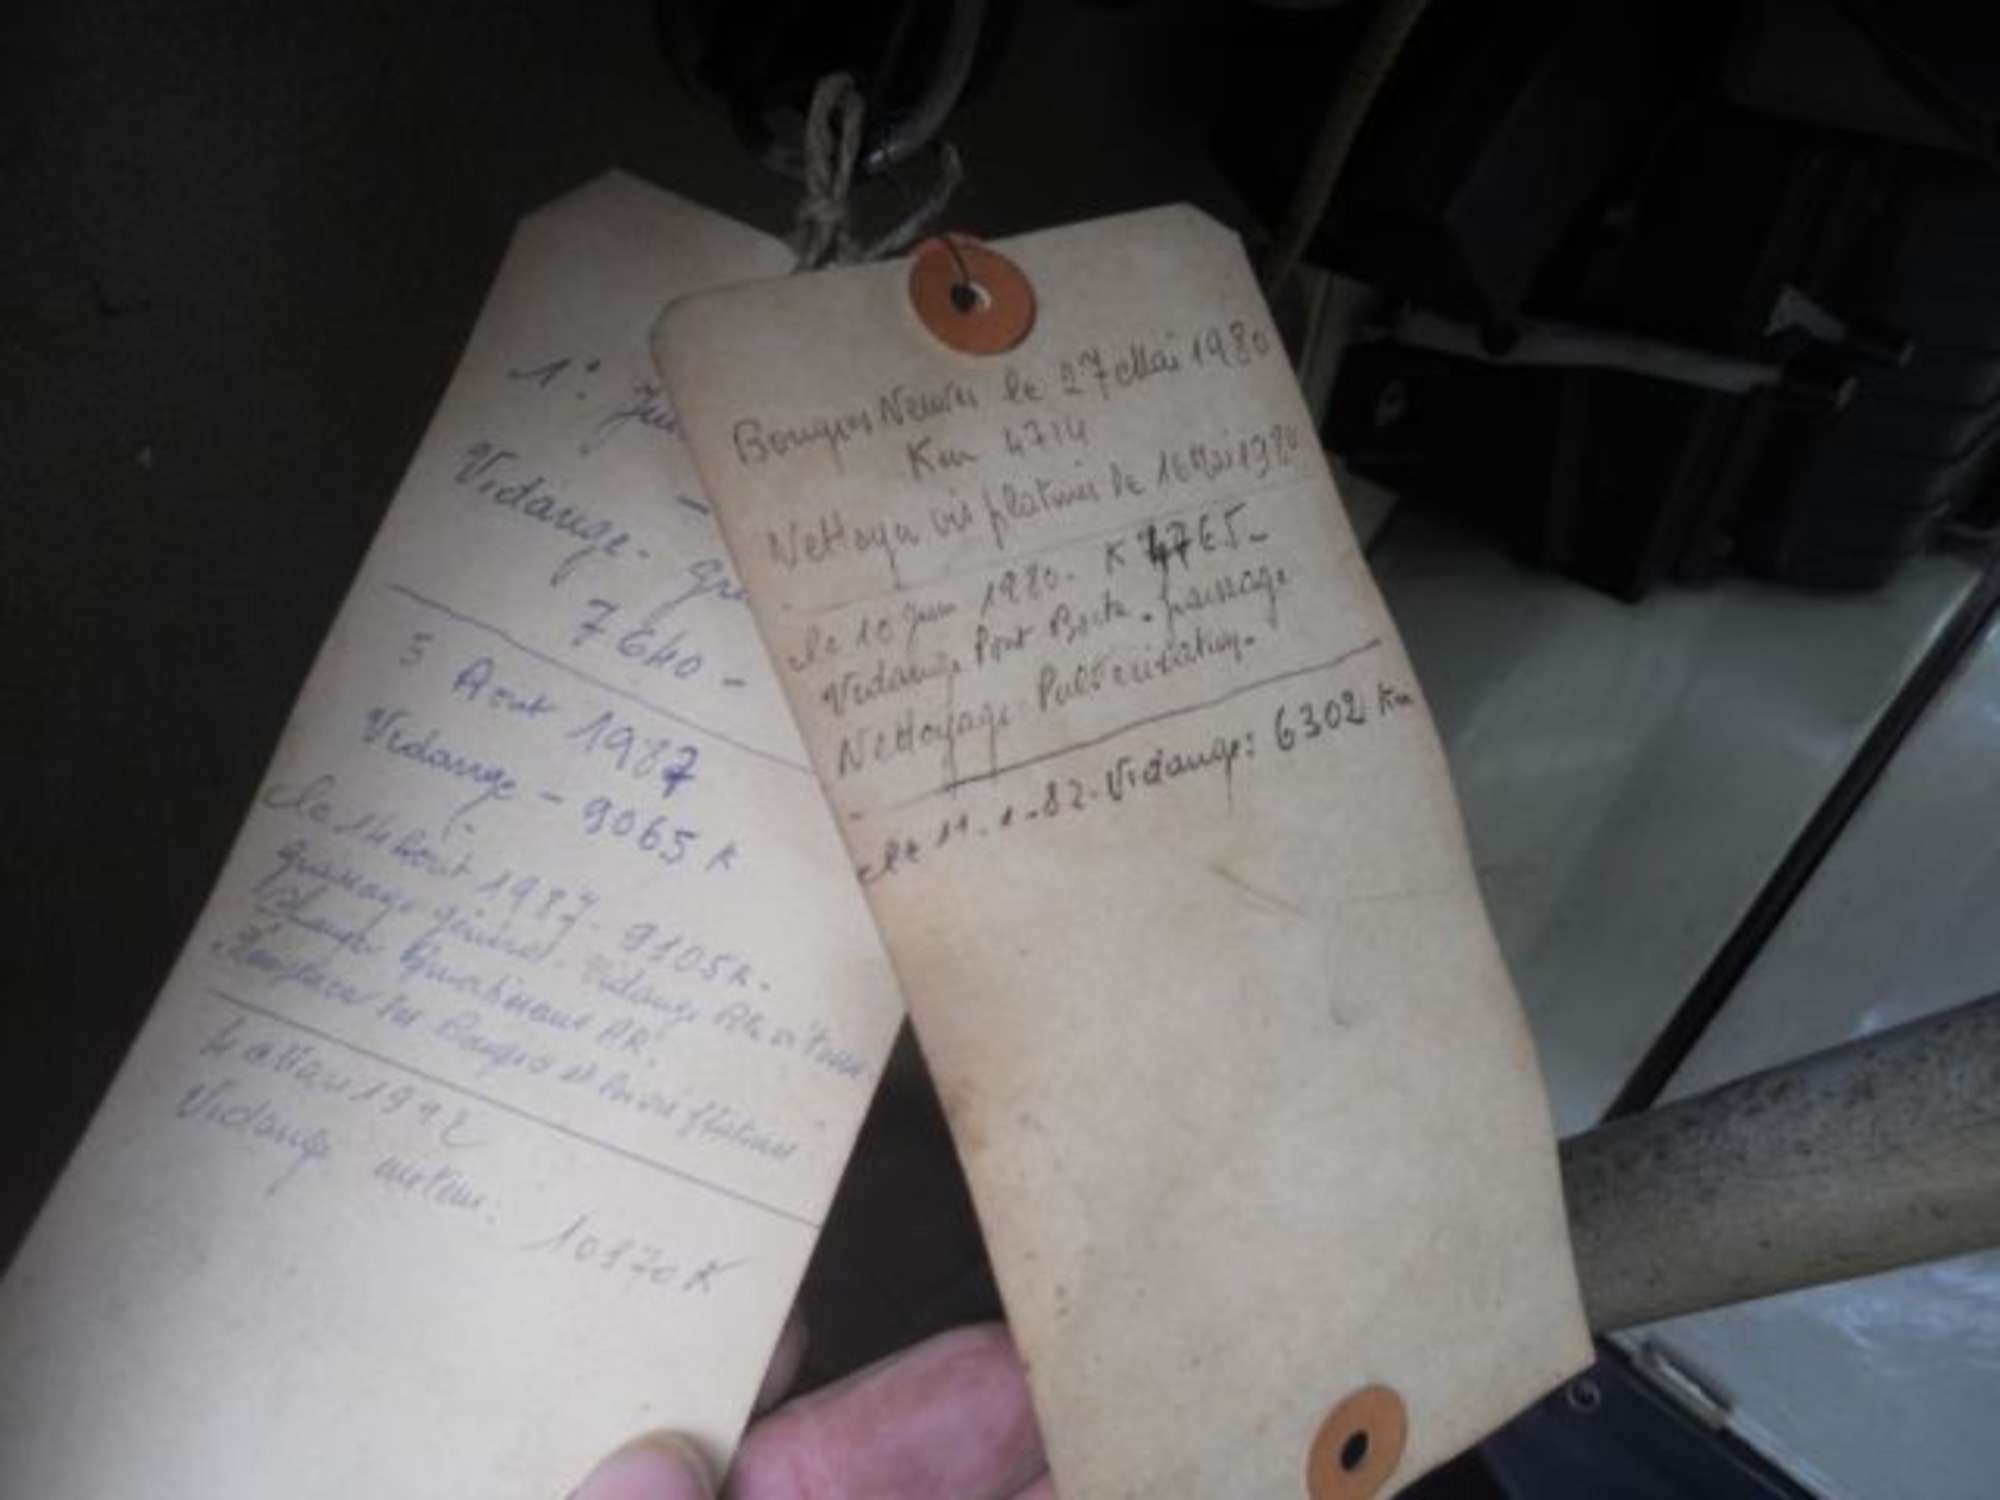 1°: Jui
Vidange - gr
7640 -
5 Aout 1987
Vidange - 9065 K
le 14 Aout 1987 - 9105 K.
graissage général. Vidange
changer AR.
Bougies et
Mars 1992
Vidange moteur. 10170 K
Bougies Neuves le 27 Mai 1980
Km 4714
Nettoyer vis platinés le 16 Mai 1980
le 10 Juin 1980. K 4765 -
Vidange Pont Boite. graissage
Nettoyage Pulverisation.
le 11-1-82. Vidange: 6302 Km